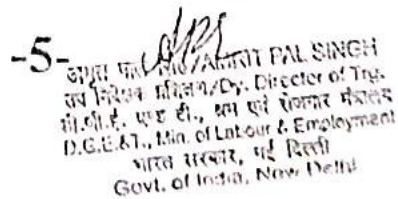 -5-
अमृत पाल सिंह/AMRIT PAL SINGH
उप निदेशक प्रशिक्षण/Dy. Director of Trg.
डी.जी.ई. एण्ड टी., श्रम एवं रोजगार मंत्रालय
D.G.E.&T., Min. of Labour & Employment
भारत सरकार, नई दिल्ली
Govt. of India, New Delhi